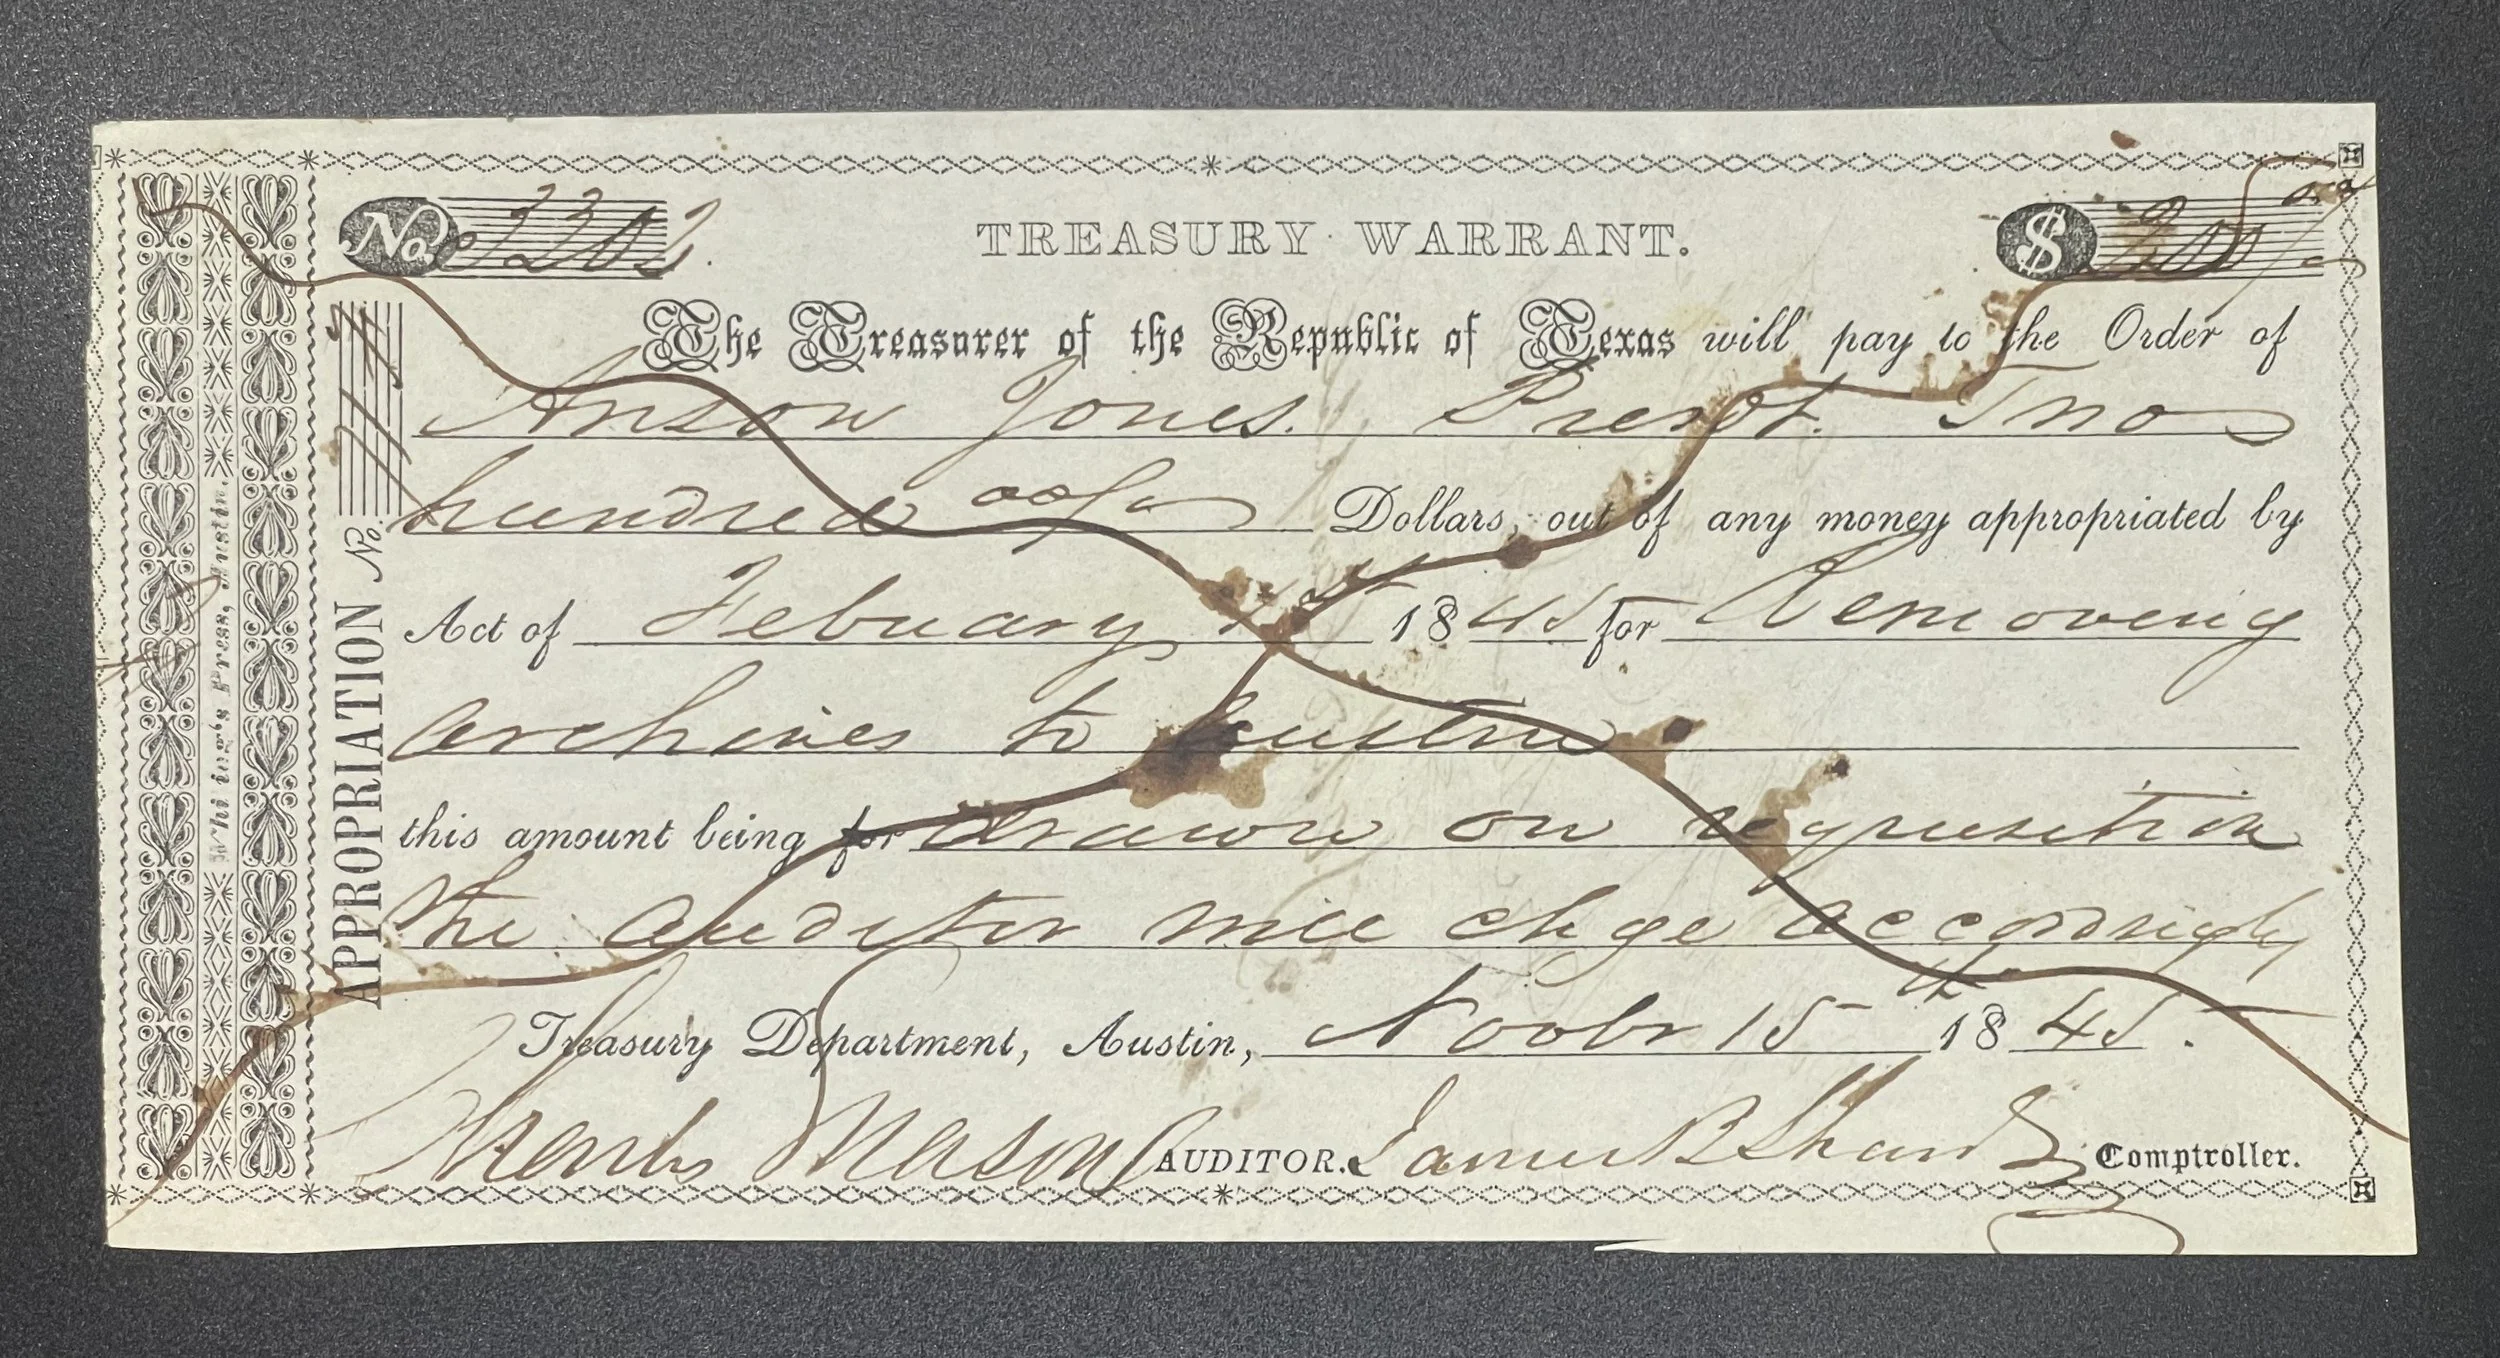 No. 3303.
TREASURY WARRANT.
$ 200
The Treasurer of the Republic of Texas will pay to the Order of
Anson Jones. Presdt. Two
hundred 00/00 Dollars, out of any money appropriated by
Act of Febuary 1845 for Removing
archives to Austin
this amount being for drawn on requisition
the auditor will chge accordingly
Treasury Department, Austin, Novbr 15th 1845.
Charles Mason AUDITOR. James B Shaw Comptroller.
APPROPRIATION No.
Whiting's Press, Austin.